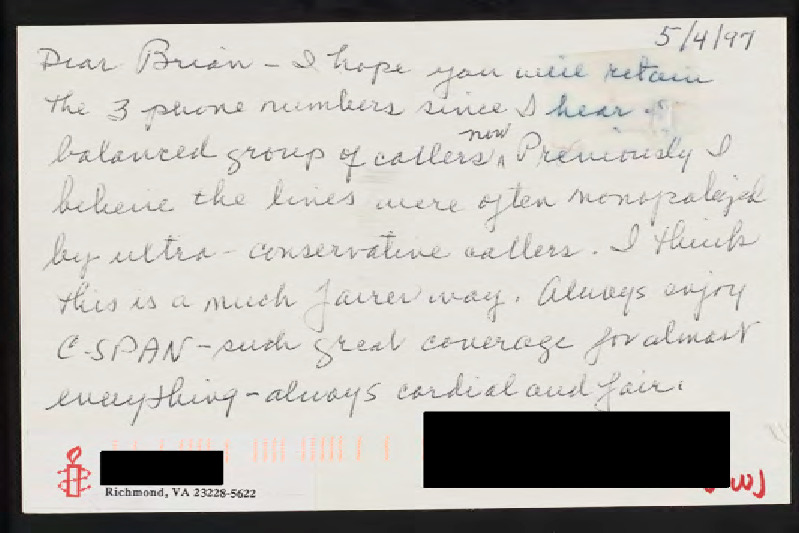 5/4/97
Dear Brian - I hope you will retain
the 3 phone numbers since I hear a
balanced group of callers now. Previously I
believe the lines were often monopolized
by ultra-conservative callers. I think
this is a much fairer way. Always enjoy
C-SPAN - such great coverage for almost
everything - always cordial and fair.
Richmond, VA 23228-5622